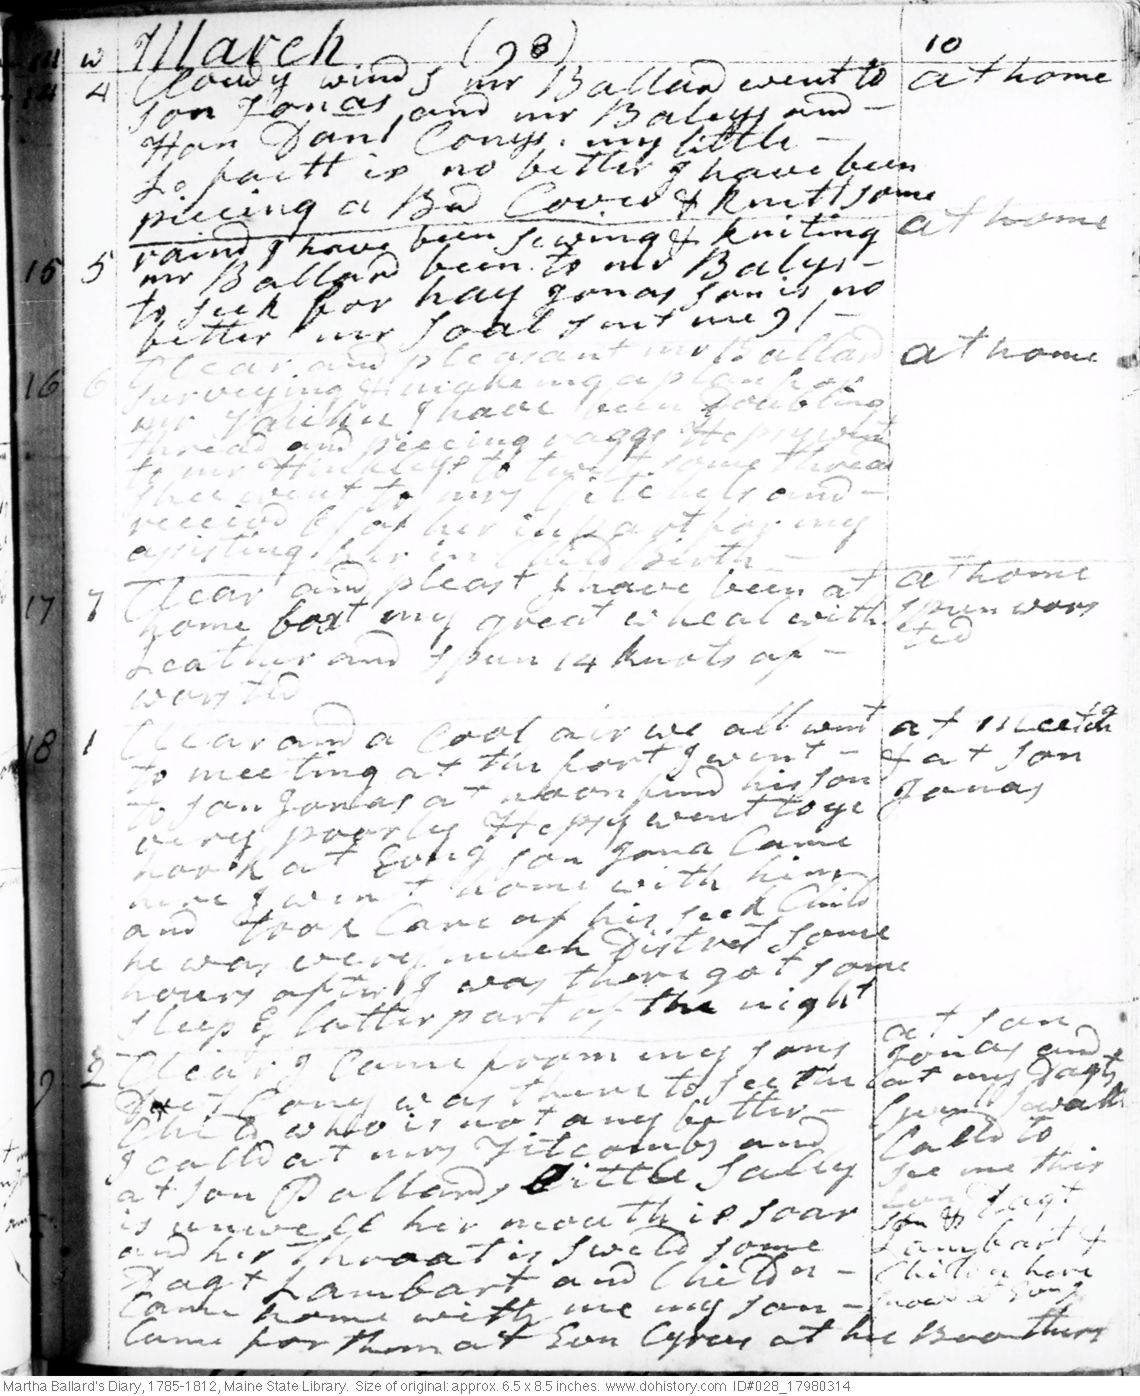 m w March (98) 10
14 4 Cloudy winds mr Ballad went to at home
son Jonas and mr Baleys and -
Hon Danl Conys. my little -
is no better I have been
piecing a Bed Cover & knitt some
raind I have been sewing & kniting at home
15 5 mr Ballard been to mr Balys -
to seek for hay Jonas son is no
better mr Soal sent me 9/ -
Clear and pleasant mr Ballard at home
16 6 surveying & makeing a plan for
mr I have been Doubling
thread and piecing raggs Hepsy went
to mr Hinkleys to twist some thread
shee went to mrs Gilchels and -
receivd 6/ of her in part for my
assisting her in Child Birth -
Clear and pleast I have been at at home
17 7 home bort my great wheal with spun wors
Leather and spun 14 knots of - ted
worsted
18 1 Clear and a Cool air we all went at meeting
to meeting at the fort I went - & at son
to son Jonas at noon find his son Jonas
very poorly Hepsy went to ye
hook at Evng son Jona Came
here I went home with him
and took Care of his seek Child
he was very much Distrest some
hours after I was there got some
sleep ye latter part of the night
at son
Clear I Came from my sons Jonas and
9 2 Doct Cony was there to see the at my Dagts
Child who is not any better -
I calld at mrs Titcombs and Calld to
at son Pollards Little Sally see me this
is unwell her mouth is soar Evn Dagt
and her throoat is sweld some
Dagt Lambart and Childn - Lambart &
Came home with me my son - Childn here
Came for them at Evn Cyrus at his Broothers
Martha Ballard's Diary, 1785-1812, Maine State Library. Size of original: approx. 6.5 x 8.5 inches. www.dohistory.com ID#028_17980314